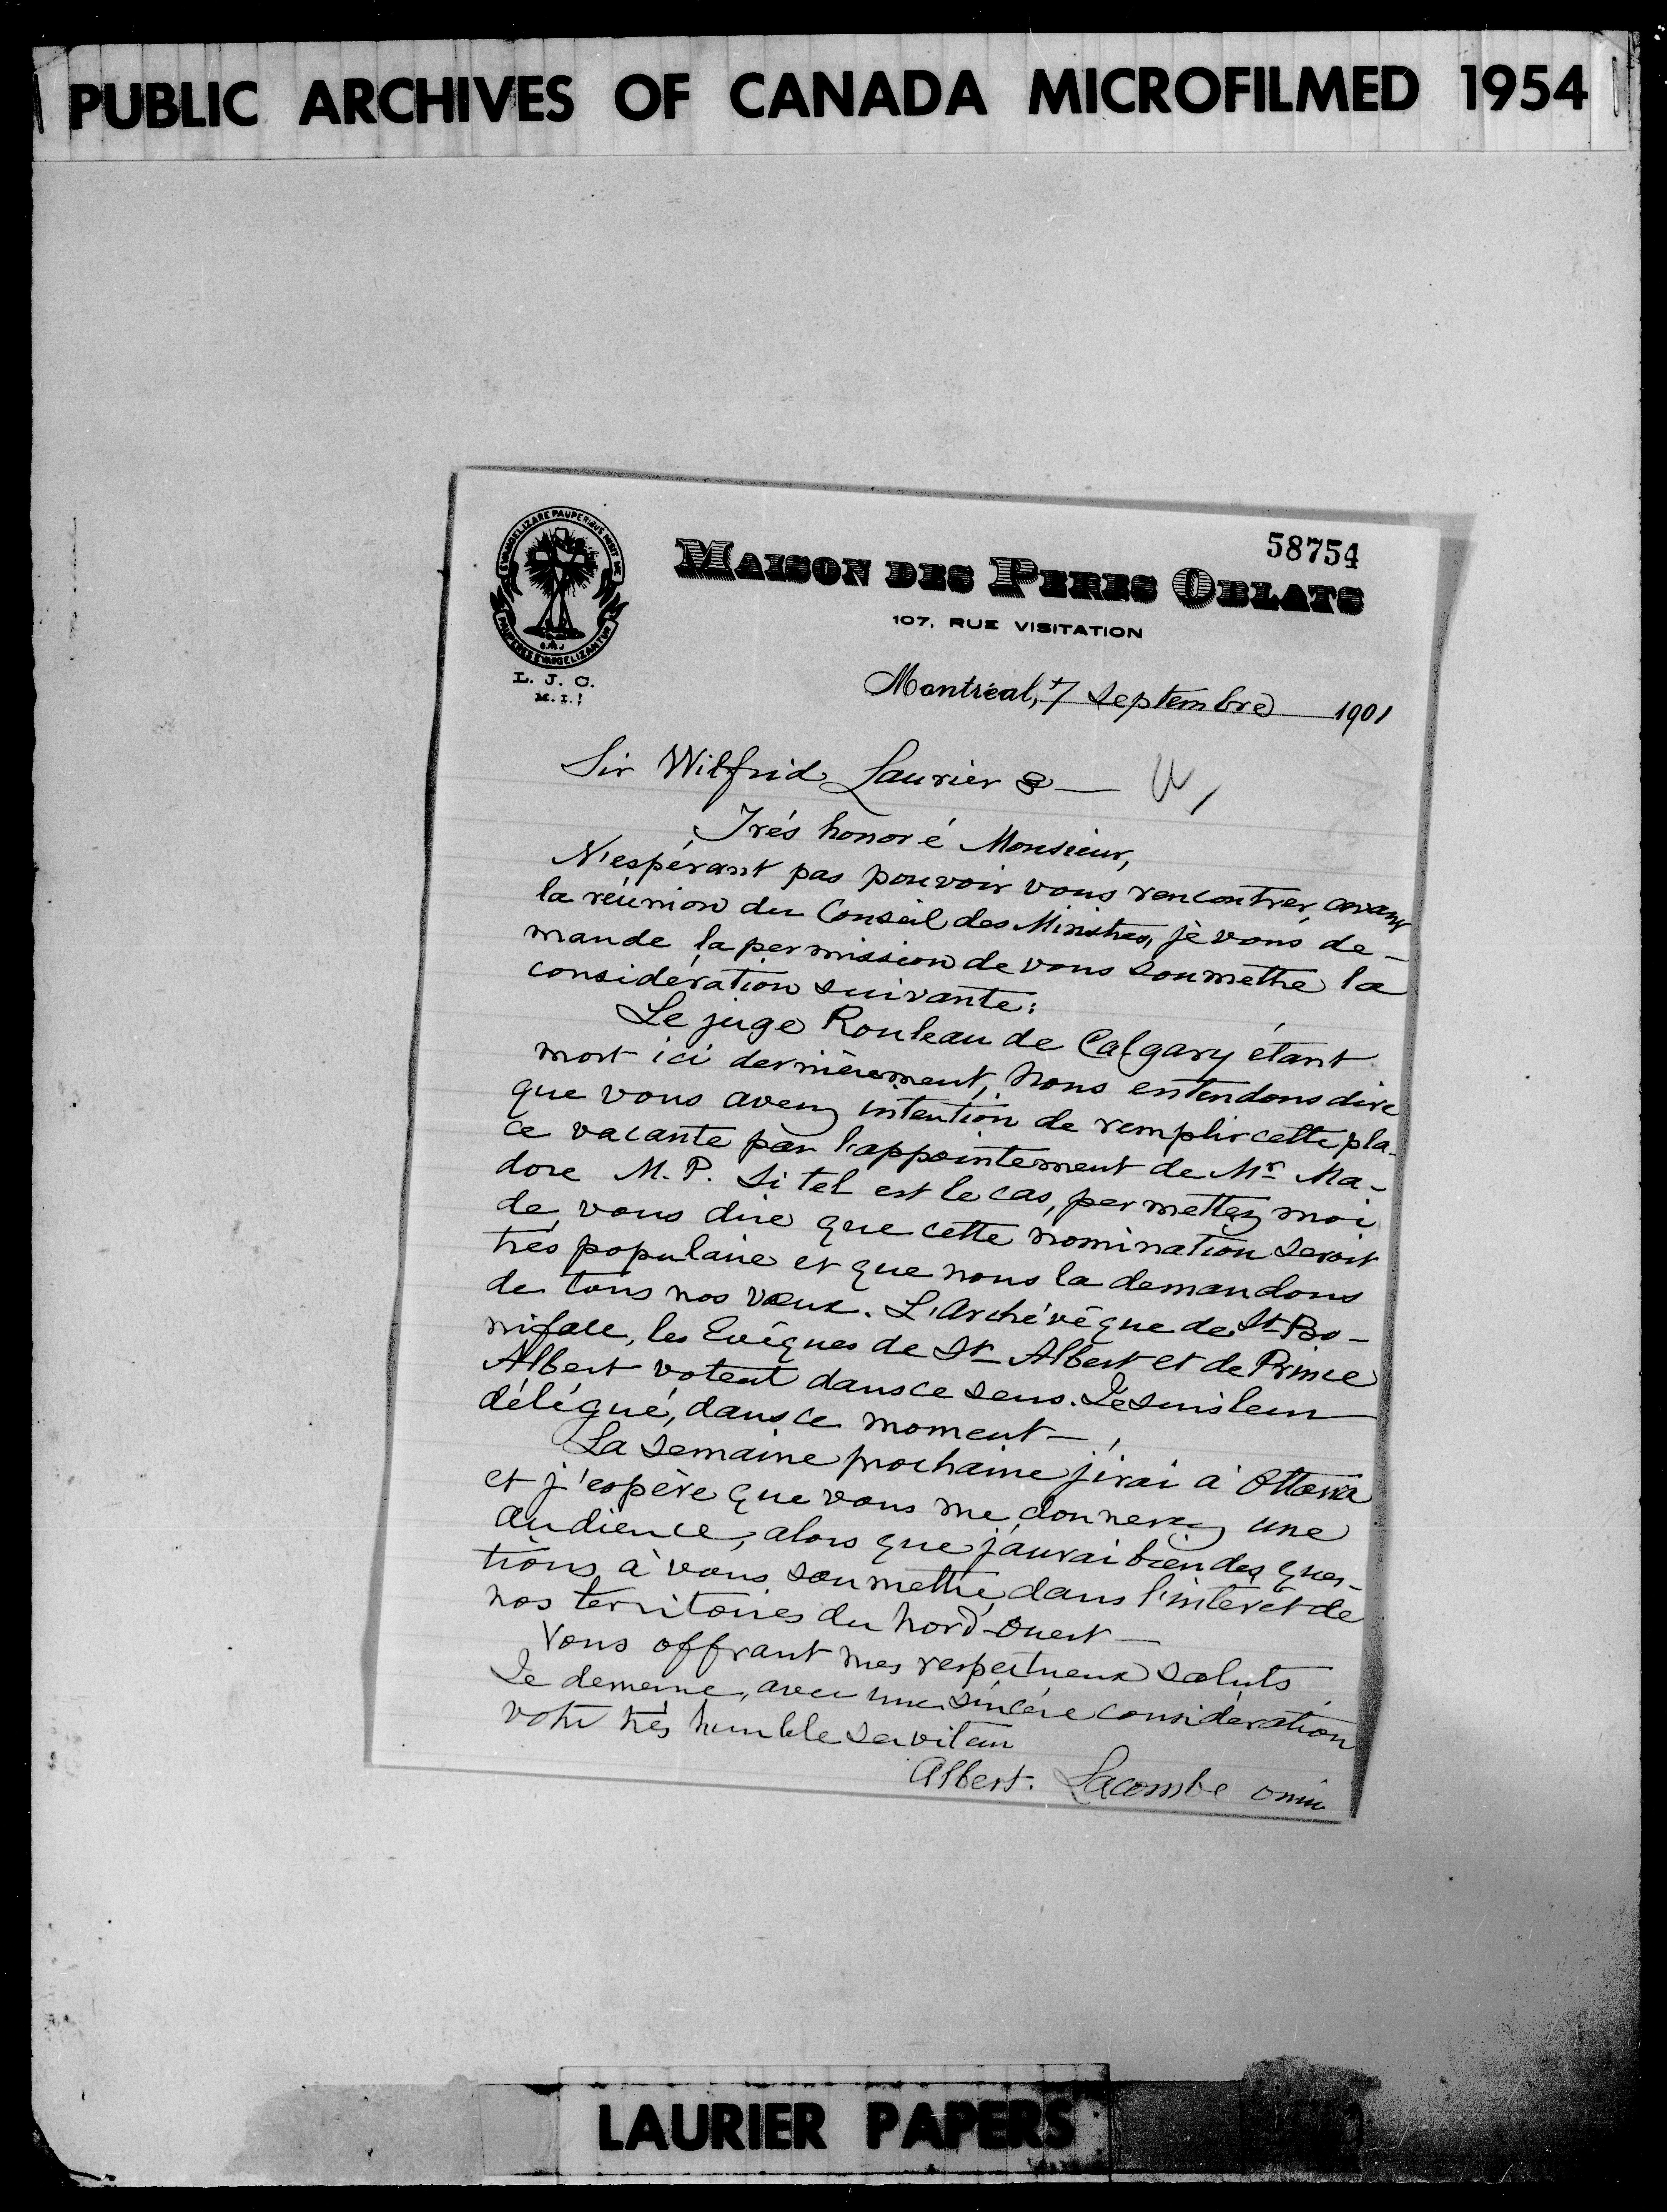 PUBLIC ARCHIVES OF CANADA MICROFILMED 1954
58754
EVANGELIZARE PAUPERIBUS MISIT ME
PAUPERES EVANGELIZANTUR
L. J. C.
M. I.
MAISON DES PERES OBLATS
107, RUE VISITATION
Montréal, 7 Septembre 1901
Sir Wilfrid Laurier
Trés honoré Monsieur,
N'espérant pas pouvoir vous rencontrer, avant
la réunion du Conseil des Ministres, je vous de-
mande la permission de vous soumettre la
considération suivante:
Le juge Rouleau de Calgary étant
mort ici dernièrement, nous entendons dire
que vous avez intention de remplir cette pla-
ce vacante par l'appointement de Mr Ma-
dore M.P. Si tel est le cas, permettez moi
de vous dire que cette nomination seroit
très populaire et que nous la demandons
de tous nos vœux. L'Archévêque de St Bo-
niface, les Evêques de St Albert et de Prince
Albert votent dans ce sens. Je suis leur
délégué, dans ce moment—
La semaine prochaine j'irai à Ottawa
et j'espère que vous me donnerez une
audience, alors que j'aurai bien des ques-
tions à vous soumettre, dans l'intérêt de
nos territoires du Nord-Ouest—
Vous offrant mes respectueux saluts
Je demeure, avec une sincère considération
votre très humble serviteur
Albert. Lacombe omi
LAURIER PAPERS